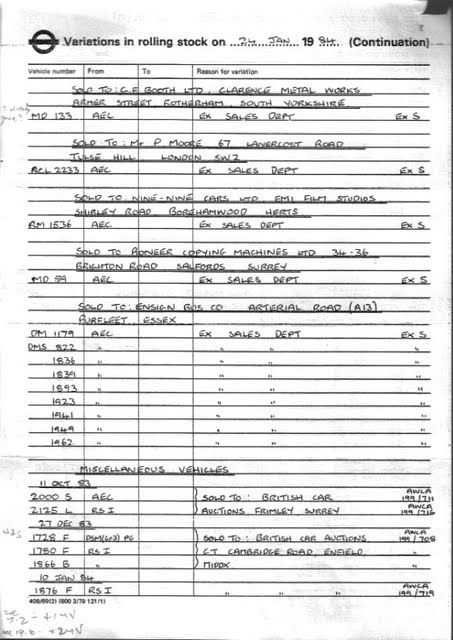 Variations in rolling stock on ...24...JAN...1984. (Continuation)
Vehicle number From To Reason for variation
SOLD TO: C.F BOOTH LTD, CLARENCE METAL WORKS
ARMER STREET ROTHERHAM, SOUTH YORKSHIRE
MD 133 AEC EX SALES DEPT EX S
SOLD TO: Mr P MOORE 67 LANERCOST ROAD
TULSE HILL LONDON SW2
RCL 2233 AEC EX SALES DEPT EX S
SOLD TO NINE-NINE CARS LTD EMI FILM STUDIOS
SHIRLEY ROAD, BOREHAMWOOD HERTS
RM 1536 AEC EX SALES DEPT EX S
SOLD TO PIONEER COPYING MACHINES LTD 34-36
BRIGHTON ROAD SALFORDS SURREY
MD 59 AEC EX SALES DEPT EX S
SOLD TO: ENSIGN BUS CO ARTERIAL ROAD (A13)
PURFLEET, ESSEX
DM 1179 AEC EX SALES DEPT EX S
DMS 822 " " " "
1836 " " " "
1839 " " " "
1893 " " " "
1923 " " " "
1941 " " " "
1949 " " " "
1962 " " " "
MISCELLANEOUS VEHICLES
11 OCT 83
2000 S AEC SOLD TO: BRITISH CAR AWCA 199/711
2125 L RSI AUCTIONS FRIMLEY, SURREY AWCA 199/716
27 DEC 83
1728 F DSM(Gr3) PG SOLD TO: BRITISH CAR AUCTIONS AWCA 199/708
1780 F RSI CT CAMBRIDGE ROAD, ENFIELD,
1866 B " MIDDX
10 JAN 84
1876 F RSI " " AWCA 199/719
408/69(2) (500 3/79 121/1)